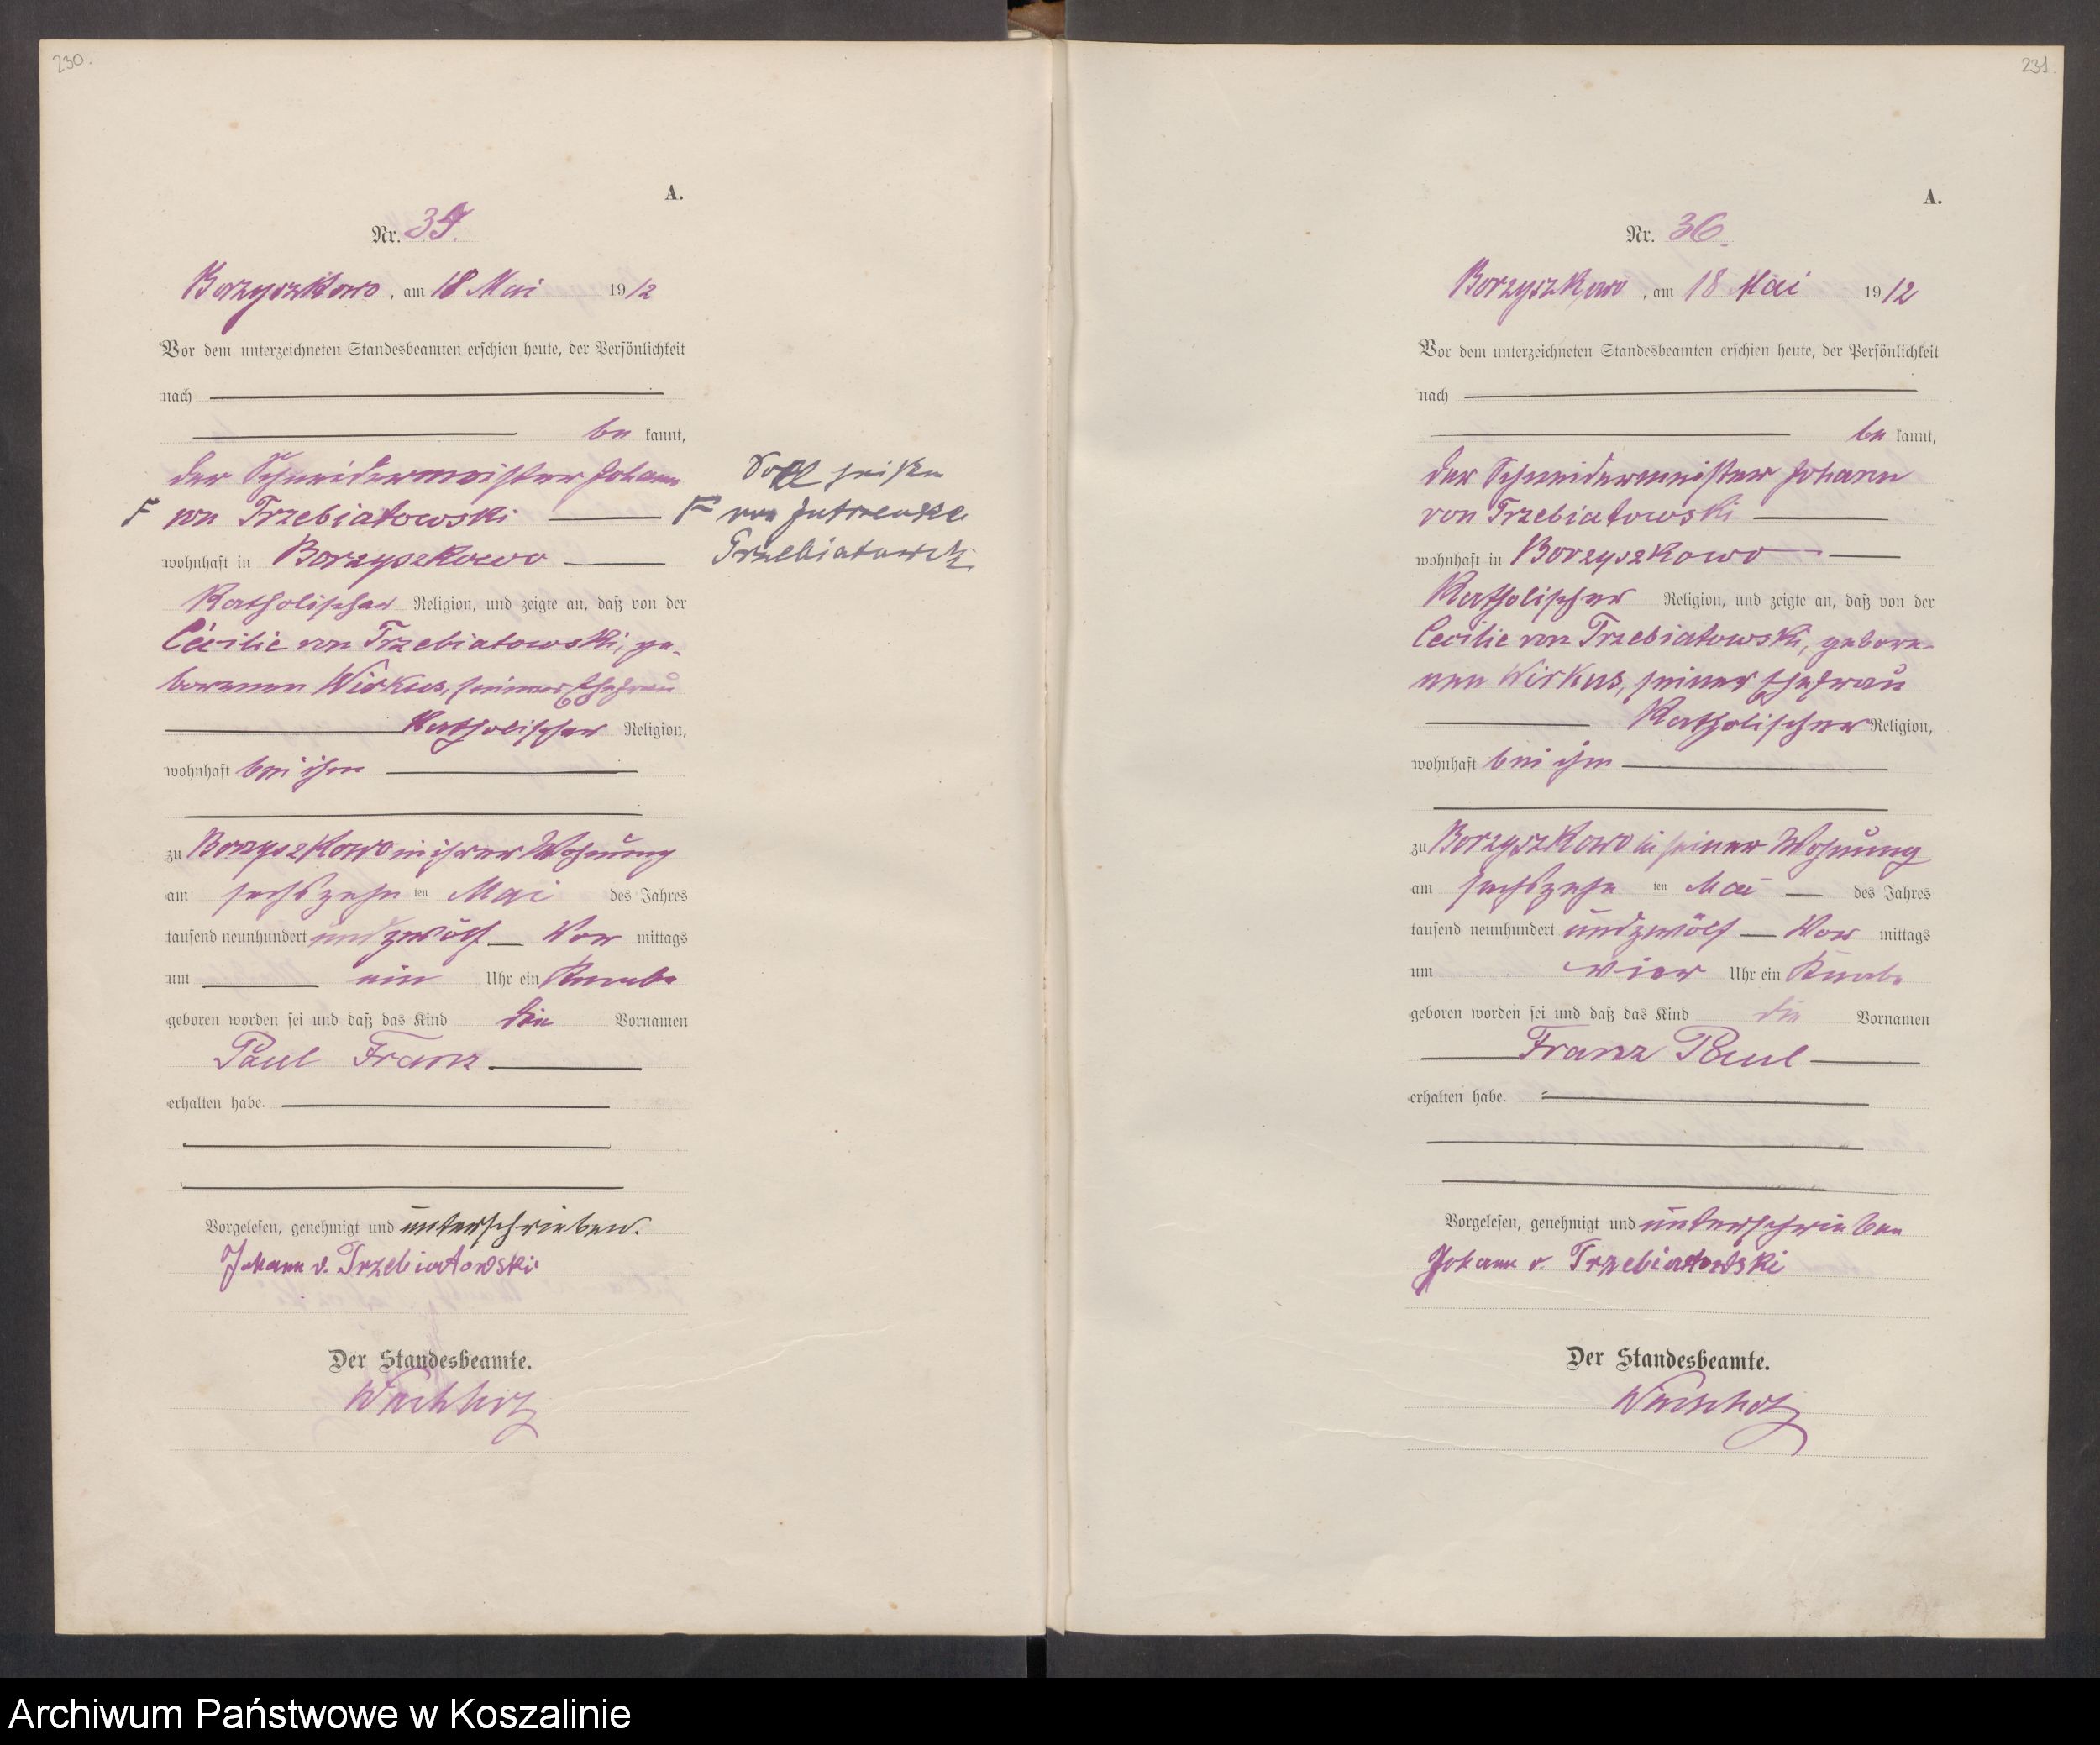 230.
A.
Nr. 35.
Borzyszkowo, am 18 Mai 1912
Vor dem unterzeichneten Standesbeamten erschien heute, der Persönlichkeit
nach
be kannt,
der Schneidermeister Johann
F von Trzebiatowski
wohnhaft in Borzyszkowo
Katholischer Religion, und zeigte an, daß von der
Cecilie von Trzebiatowski, ge-
borenen Wirkus, seiner Ehefrau
Katholischer Religion,
wohnhaft bei ihm
zu Borzyszkowo in ihrer Wohnung
am sechszehn ten Mai des Jahres
tausend neunhundert und zwölf Vor mittags
um ein Uhr ein Knabe
geboren worden sei und daß das Kind die Vornamen
Paul Franz
erhalten habe.
Vorgelesen, genehmigt und unterschrieben.
Johann v. Trzebiatowski
Der Standesbeamte.
Wachholz
Soll heißen
F von Jutrzenka
Trzebiatowski
231.
A.
Nr. 36.
Borzyszkowo, am 18 Mai 1912
Vor dem unterzeichneten Standesbeamten erschien heute, der Persönlichkeit
nach
be kannt,
der Schneidermeister Johann
von Trzebiatowski
wohnhaft in Borzyszkowo
Katholischer Religion, und zeigte an, daß von der
Cecilie von Trzebiatowski, gebore-
nen Wirkus, seiner Ehefrau
Katholischer Religion,
wohnhaft bei ihm
zu Borzyszkowo in seiner Wohnung
am sechszehn ten Mai des Jahres
tausend neunhundert und zwölf Vor mittags
um vier Uhr ein Knabe
geboren worden sei und daß das Kind die Vornamen
Franz Paul
erhalten habe.
Vorgelesen, genehmigt und unterschrieben
Johann v. Trzebiatowski
Der Standesbeamte.
Wachholz
Archiwum Państwowe w Koszalinie